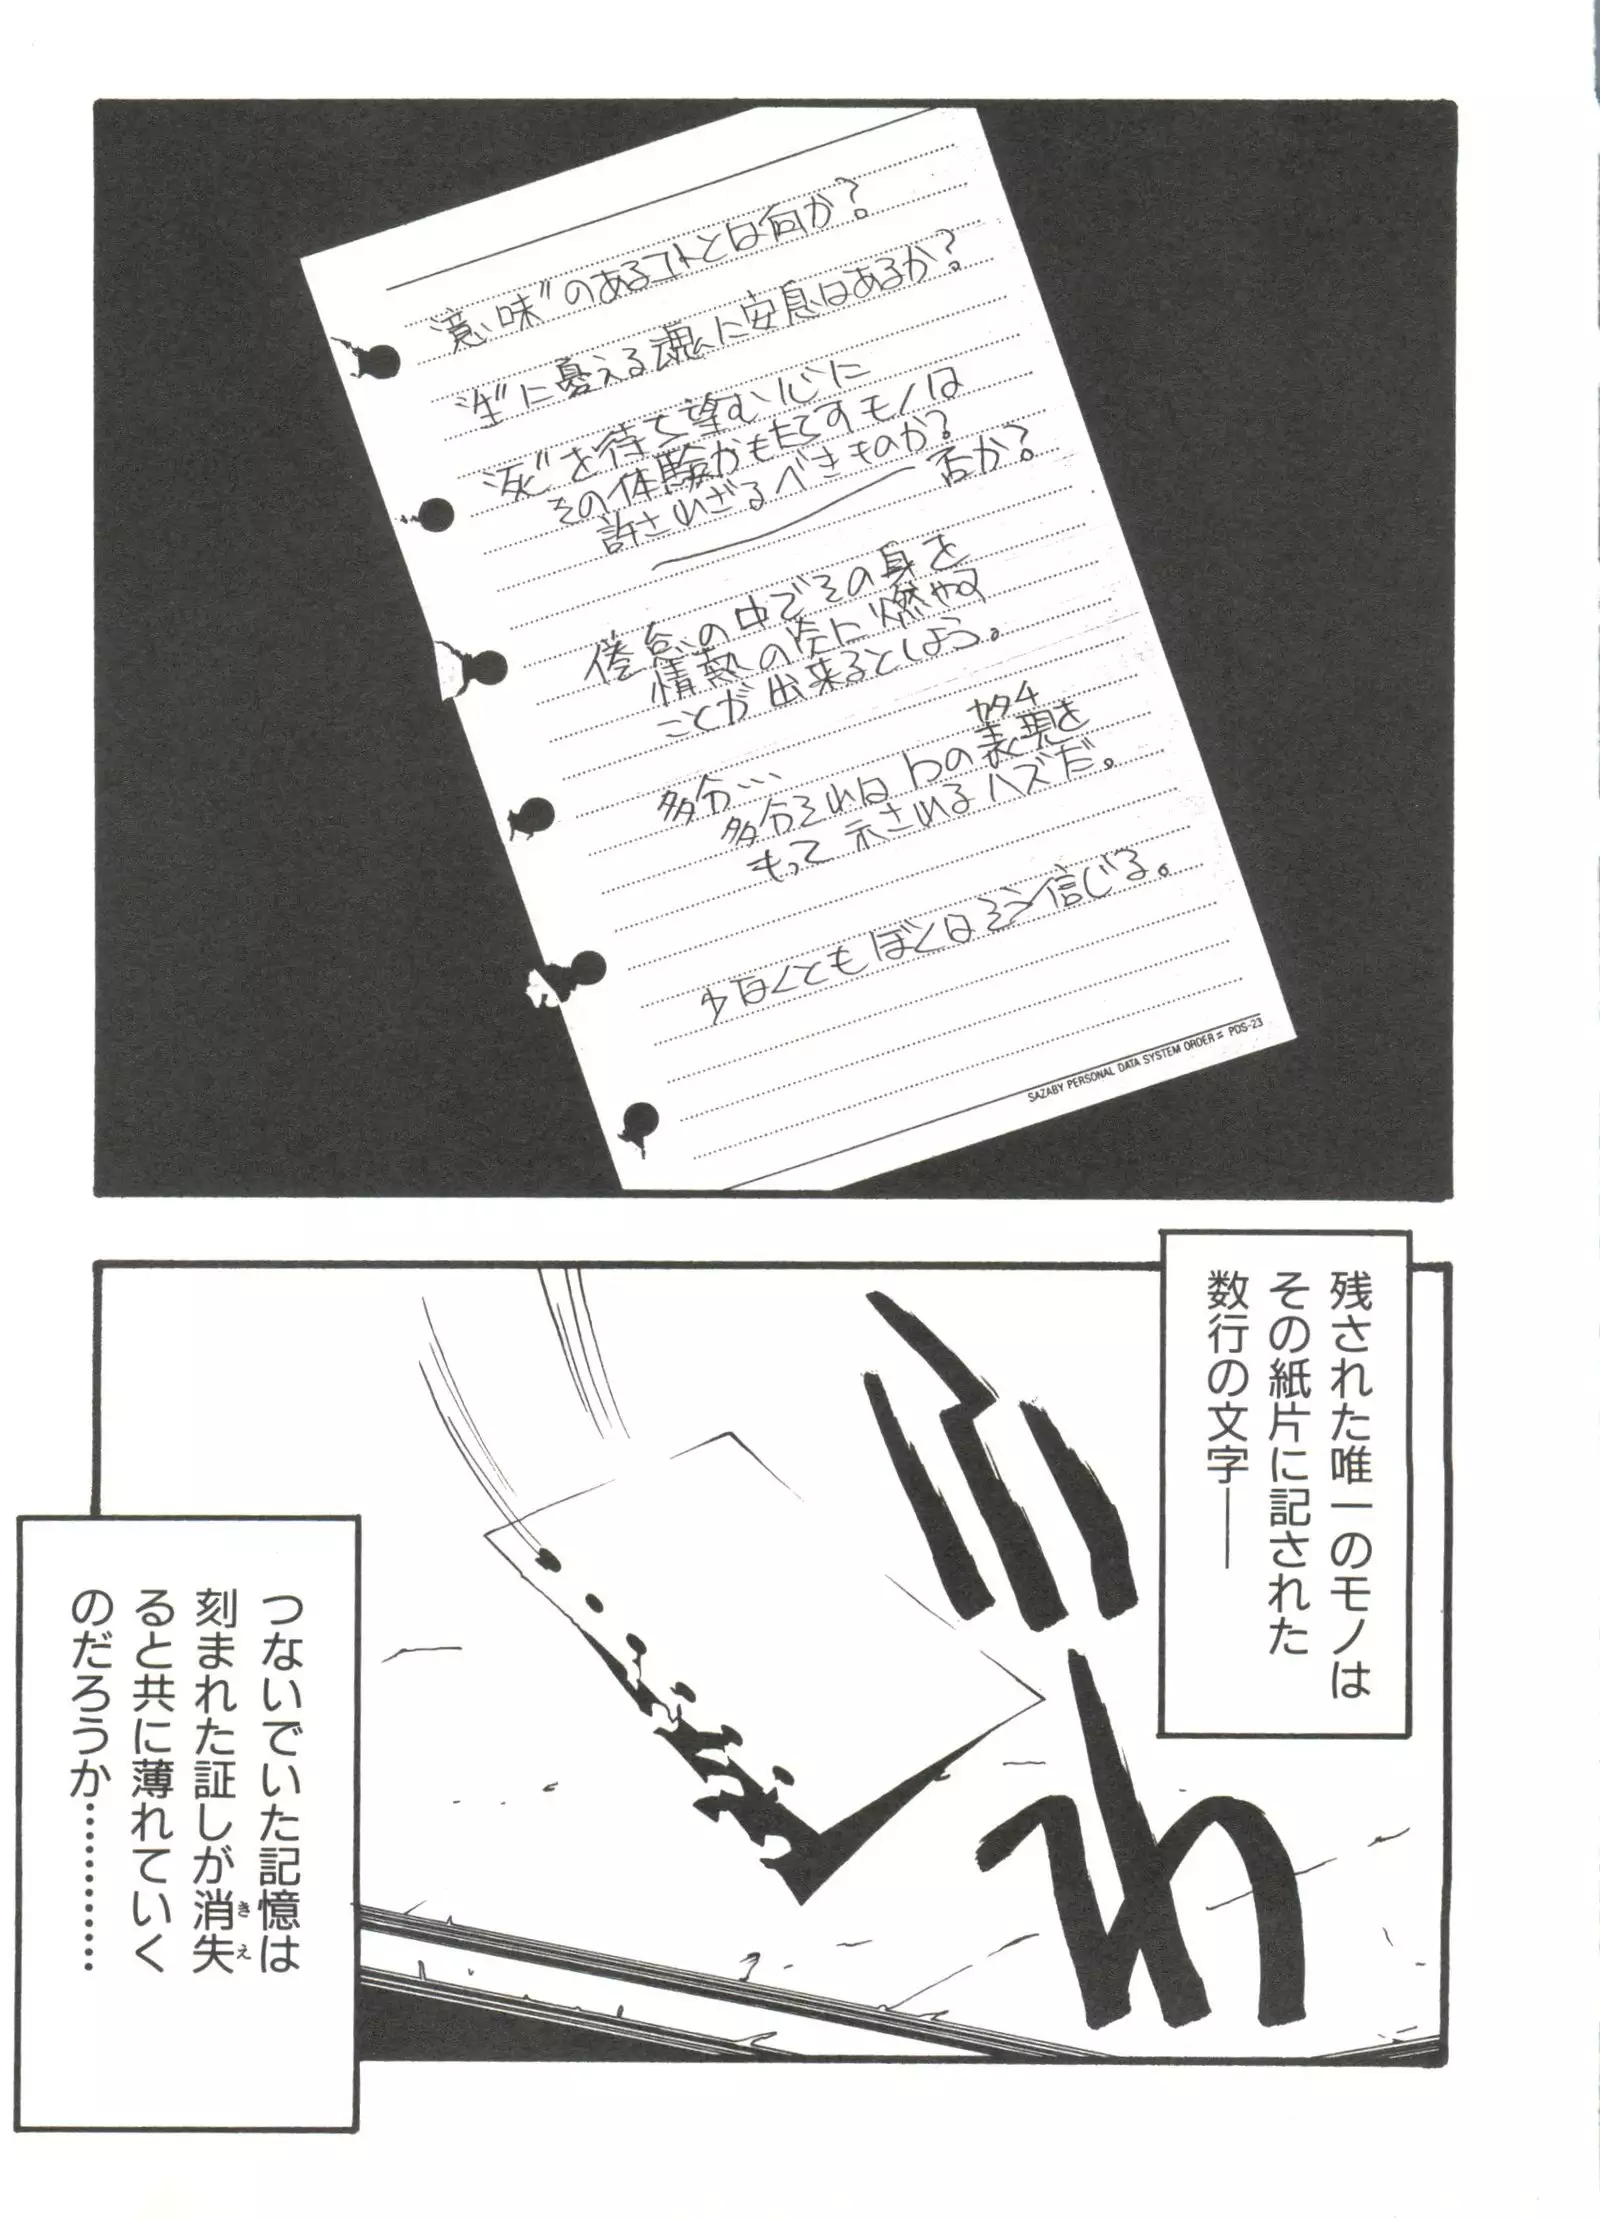 “意味”のあるコトとは何か?
“生”に憂える魂に安息はあるか?
“死”を待ち望む心に
その体験がもたらすモノは
許されざるべきものか?
否か?
倦怠の中でその身を
情熱の炎に燃やす
ことが出来るとしよう。
多分…
カタチ
多分それはhの表現を
もって示されるハズだ。
少なくともぼくはそう信じる。
SAZABY PERSONAL DATA SYSTEM ORDER= PDS-23
残された唯一のモノは
その紙片に記された
数行の文字──
つないでいた記憶は
刻まれた証しが消失
きえ
ると共に薄れていく
のだろうか…………